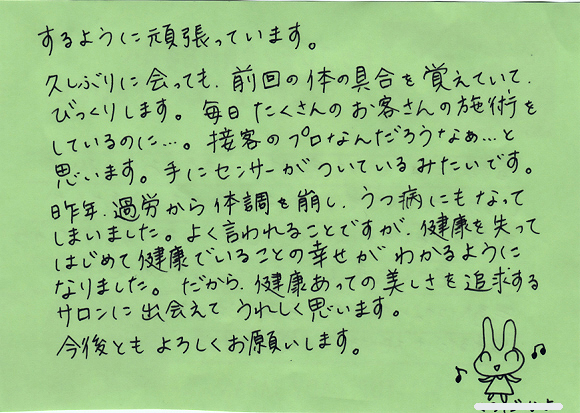 するように頑張っています。
久しぶりに会っても、前回の体の具合を覚えていて、
びっくりします。毎日たくさんのお客さんの施術を
しているのに…。接客のプロなんだろうなぁ…と
思います。手にセンサーがついているみたいです。
昨年、過労から体調を崩し、うつ病にもなって
しまいました。よく言われることですが、健康を失って
はじめて健康でいることの幸せがわかるように
なりました。だから、健康あっての美しさを追求する
サロンに出会えてうれしく思います。
今後ともよろしくお願いします。